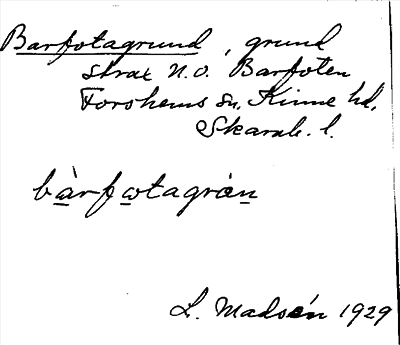 Barfotagrund, grund
strax n.o. Barfoten
Forshems sn, Kinne hd,
Skarab. l.
bàrfωtagrón
L. Madsén 1929